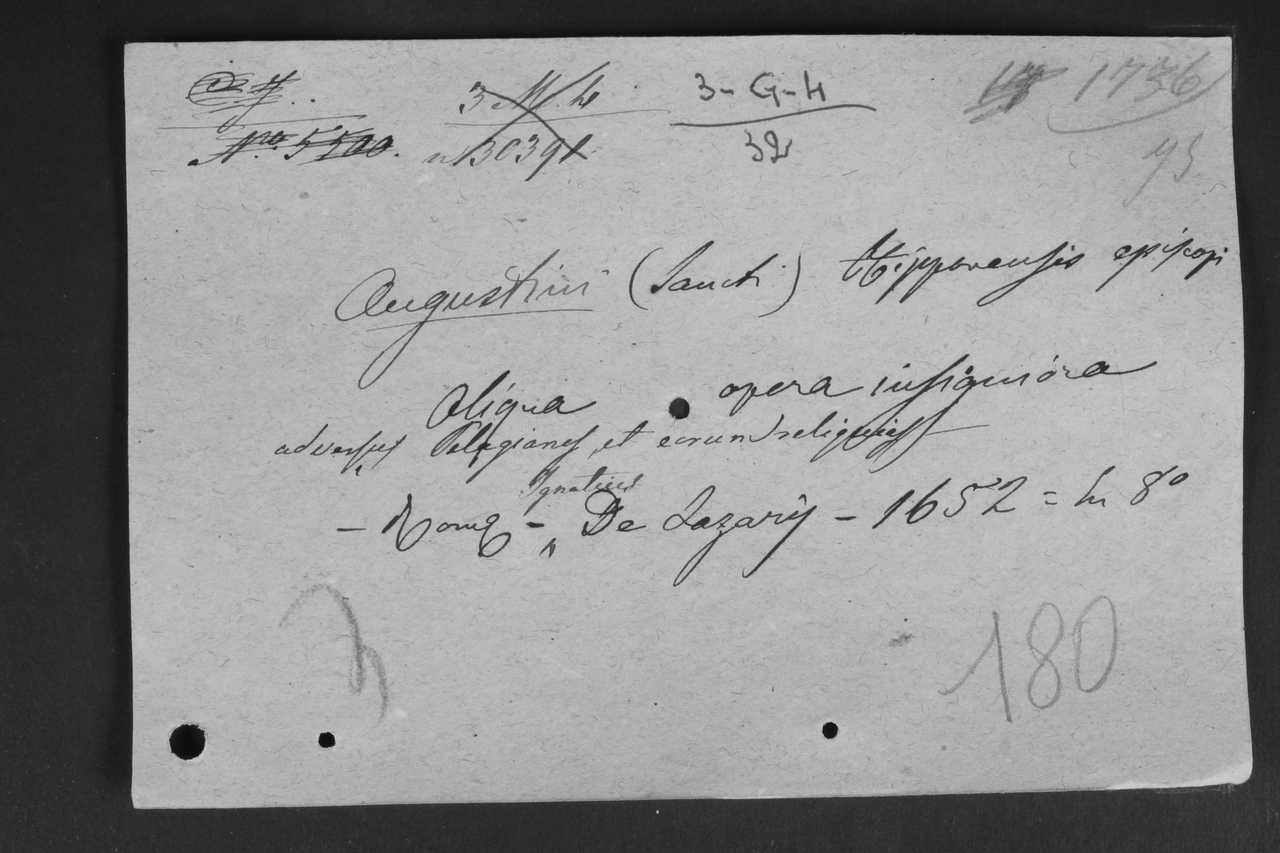 Nro 5500.
3-M-4
n 30391
3-G-4
32
17 1736
73
Augustini (Sancti) Hipponensis episcopi
Aliqua opera insigniora
adversus Pelagianos et eorum reliquias
Ignatius
- Romæ - De Lazaris - 1652 = in 8º
180